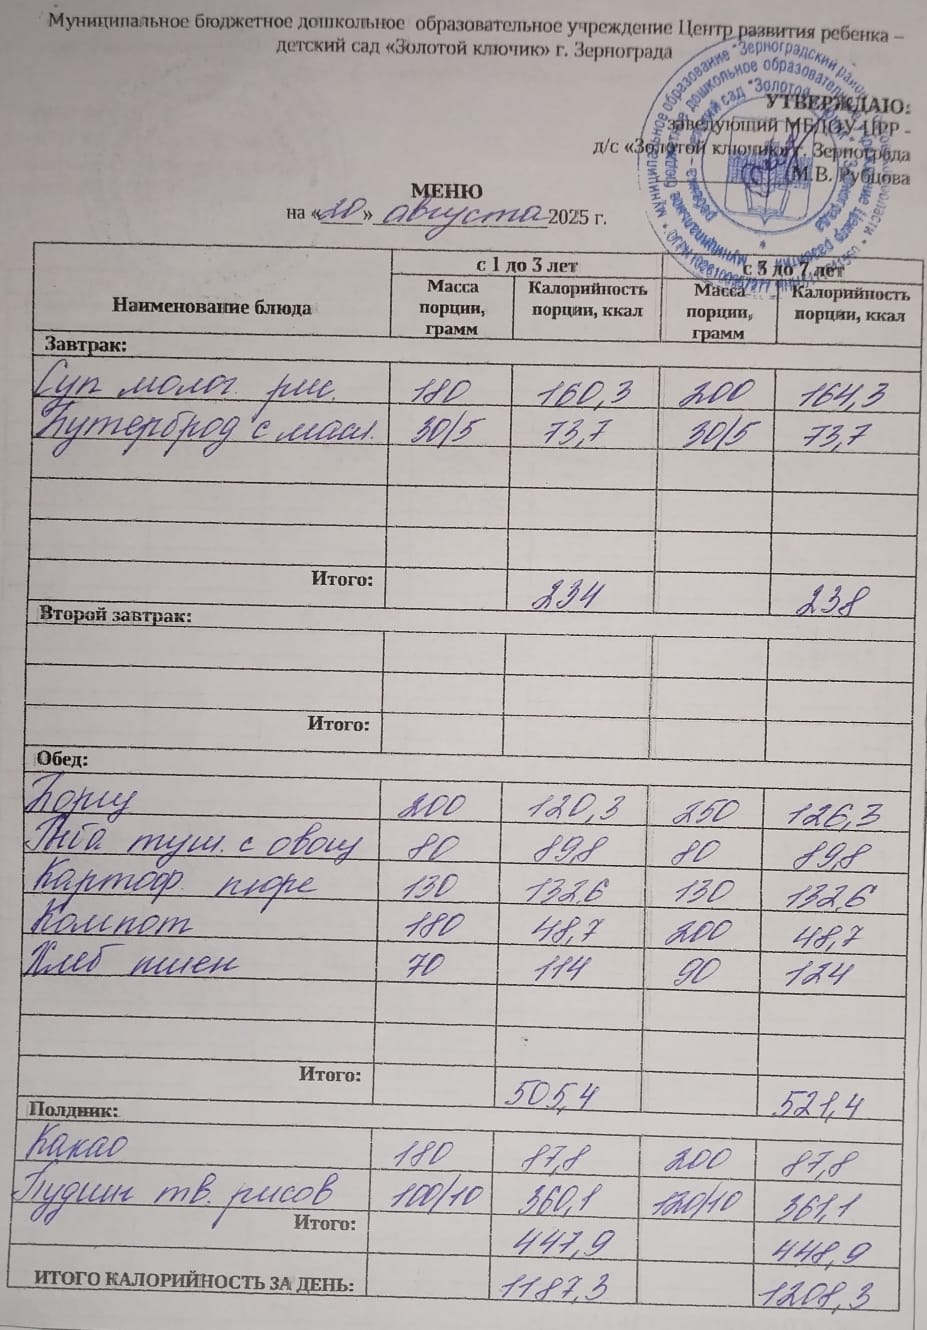 Муниципальное бюджетное дошкольное образовательное учреждение Центр развития ребенка –
детский сад «Золотой ключик» г. Зернограда
УТВЕРЖДАЮ:
заведующий МБДОУ ЦРР -
д/с «Золотой ключик» г. Зернограда
М.В. Рубцова
МЕНЮ
на «20» августа 2025 г.
Наименование блюда с 1 до 3 лет с 3 до 7 лет
Масса порции, грамм Калорийность порции, ккал Масса порции, грамм Калорийность порции, ккал
Завтрак:
Суп молоч. рис. 180 160,3 200 164,3
Бутерброд с масл. 30/5 73,7 30/5 73,7
Итого: 234 238
Второй завтрак:
Итого:
Обед:
Борщ 200 120,3 250 126,3
туш. с овощ 80 89,8 80 89,8
Картоф. пюре 130 132,6 130 132,6
Компот 180 48,7 200 48,7
Хлеб пшен 70 114 90 124
Итого: 505,4 521,4
Полдник:
Какао 180 87,8 200 87,8
Пудинг тв. рисов 100/10 360,1 120/10 361,1
Итого: 447,9 448,9
ИТОГО КАЛОРИЙНОСТЬ ЗА ДЕНЬ: 1187,3 1208,3